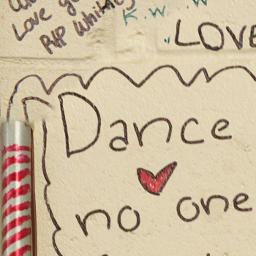 Love y
RIP Whitney
K.W.
"LOVE
Dance
no one